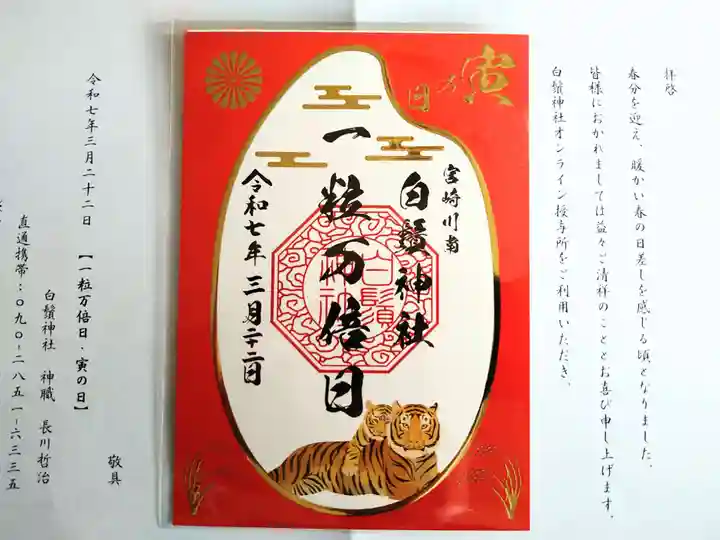 拝啓
春分を迎え、暖かい春の日差しを感じる頃となりました。
皆様におかれましては益々ご清祥のこととお喜び申し上げます。
白鬚神社オンライン授与所をご利用いただき、
寅
万
日
宮崎川南
白鬚神社
一粒万倍日
令和七年 三月二十二日
敬具
令和七年三月二十二日 【一粒万倍日・寅の日】
白鬚神社 神職 長川哲治
直通携帯：０９０－２８５１－６３３５